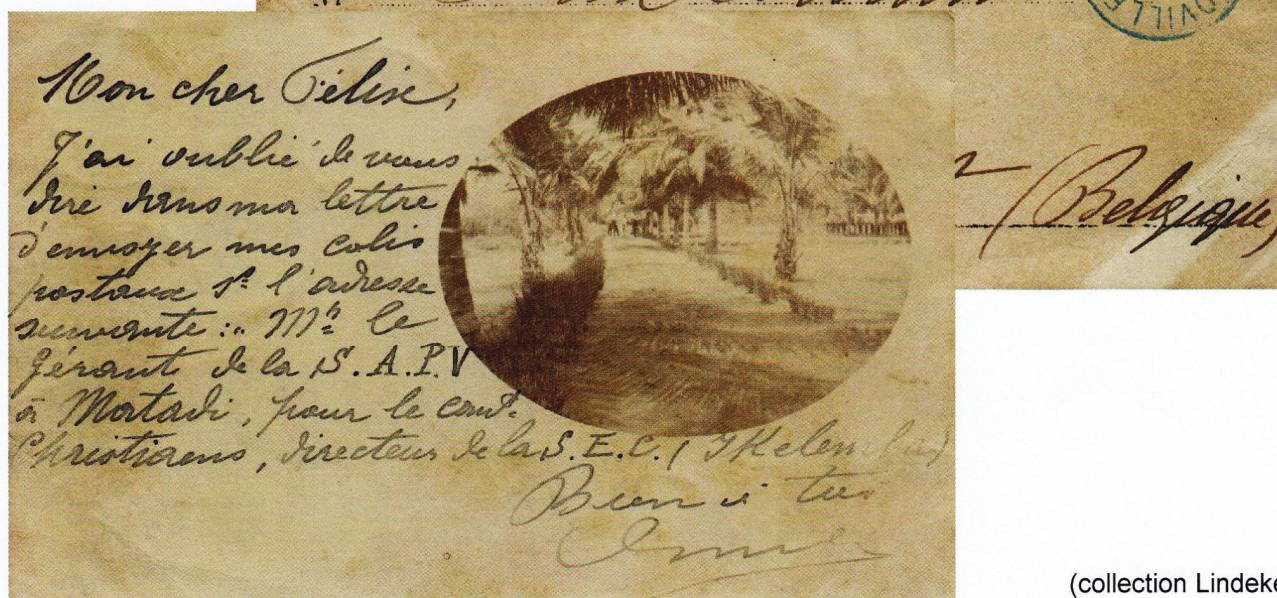 DVILLE
(Belgique)
Mon cher Félix,
J'ai oublié de vous
dire dans ma lettre
d'envoyer mes colis
postaux sr l'adresse
suivante : Mr le
gérant de la S.A.P.V
à Matadi, pour le comt.
Christiaens, directeur de la S.E.C. (Ikelemba)
Bien à toi
(collection Lindeke